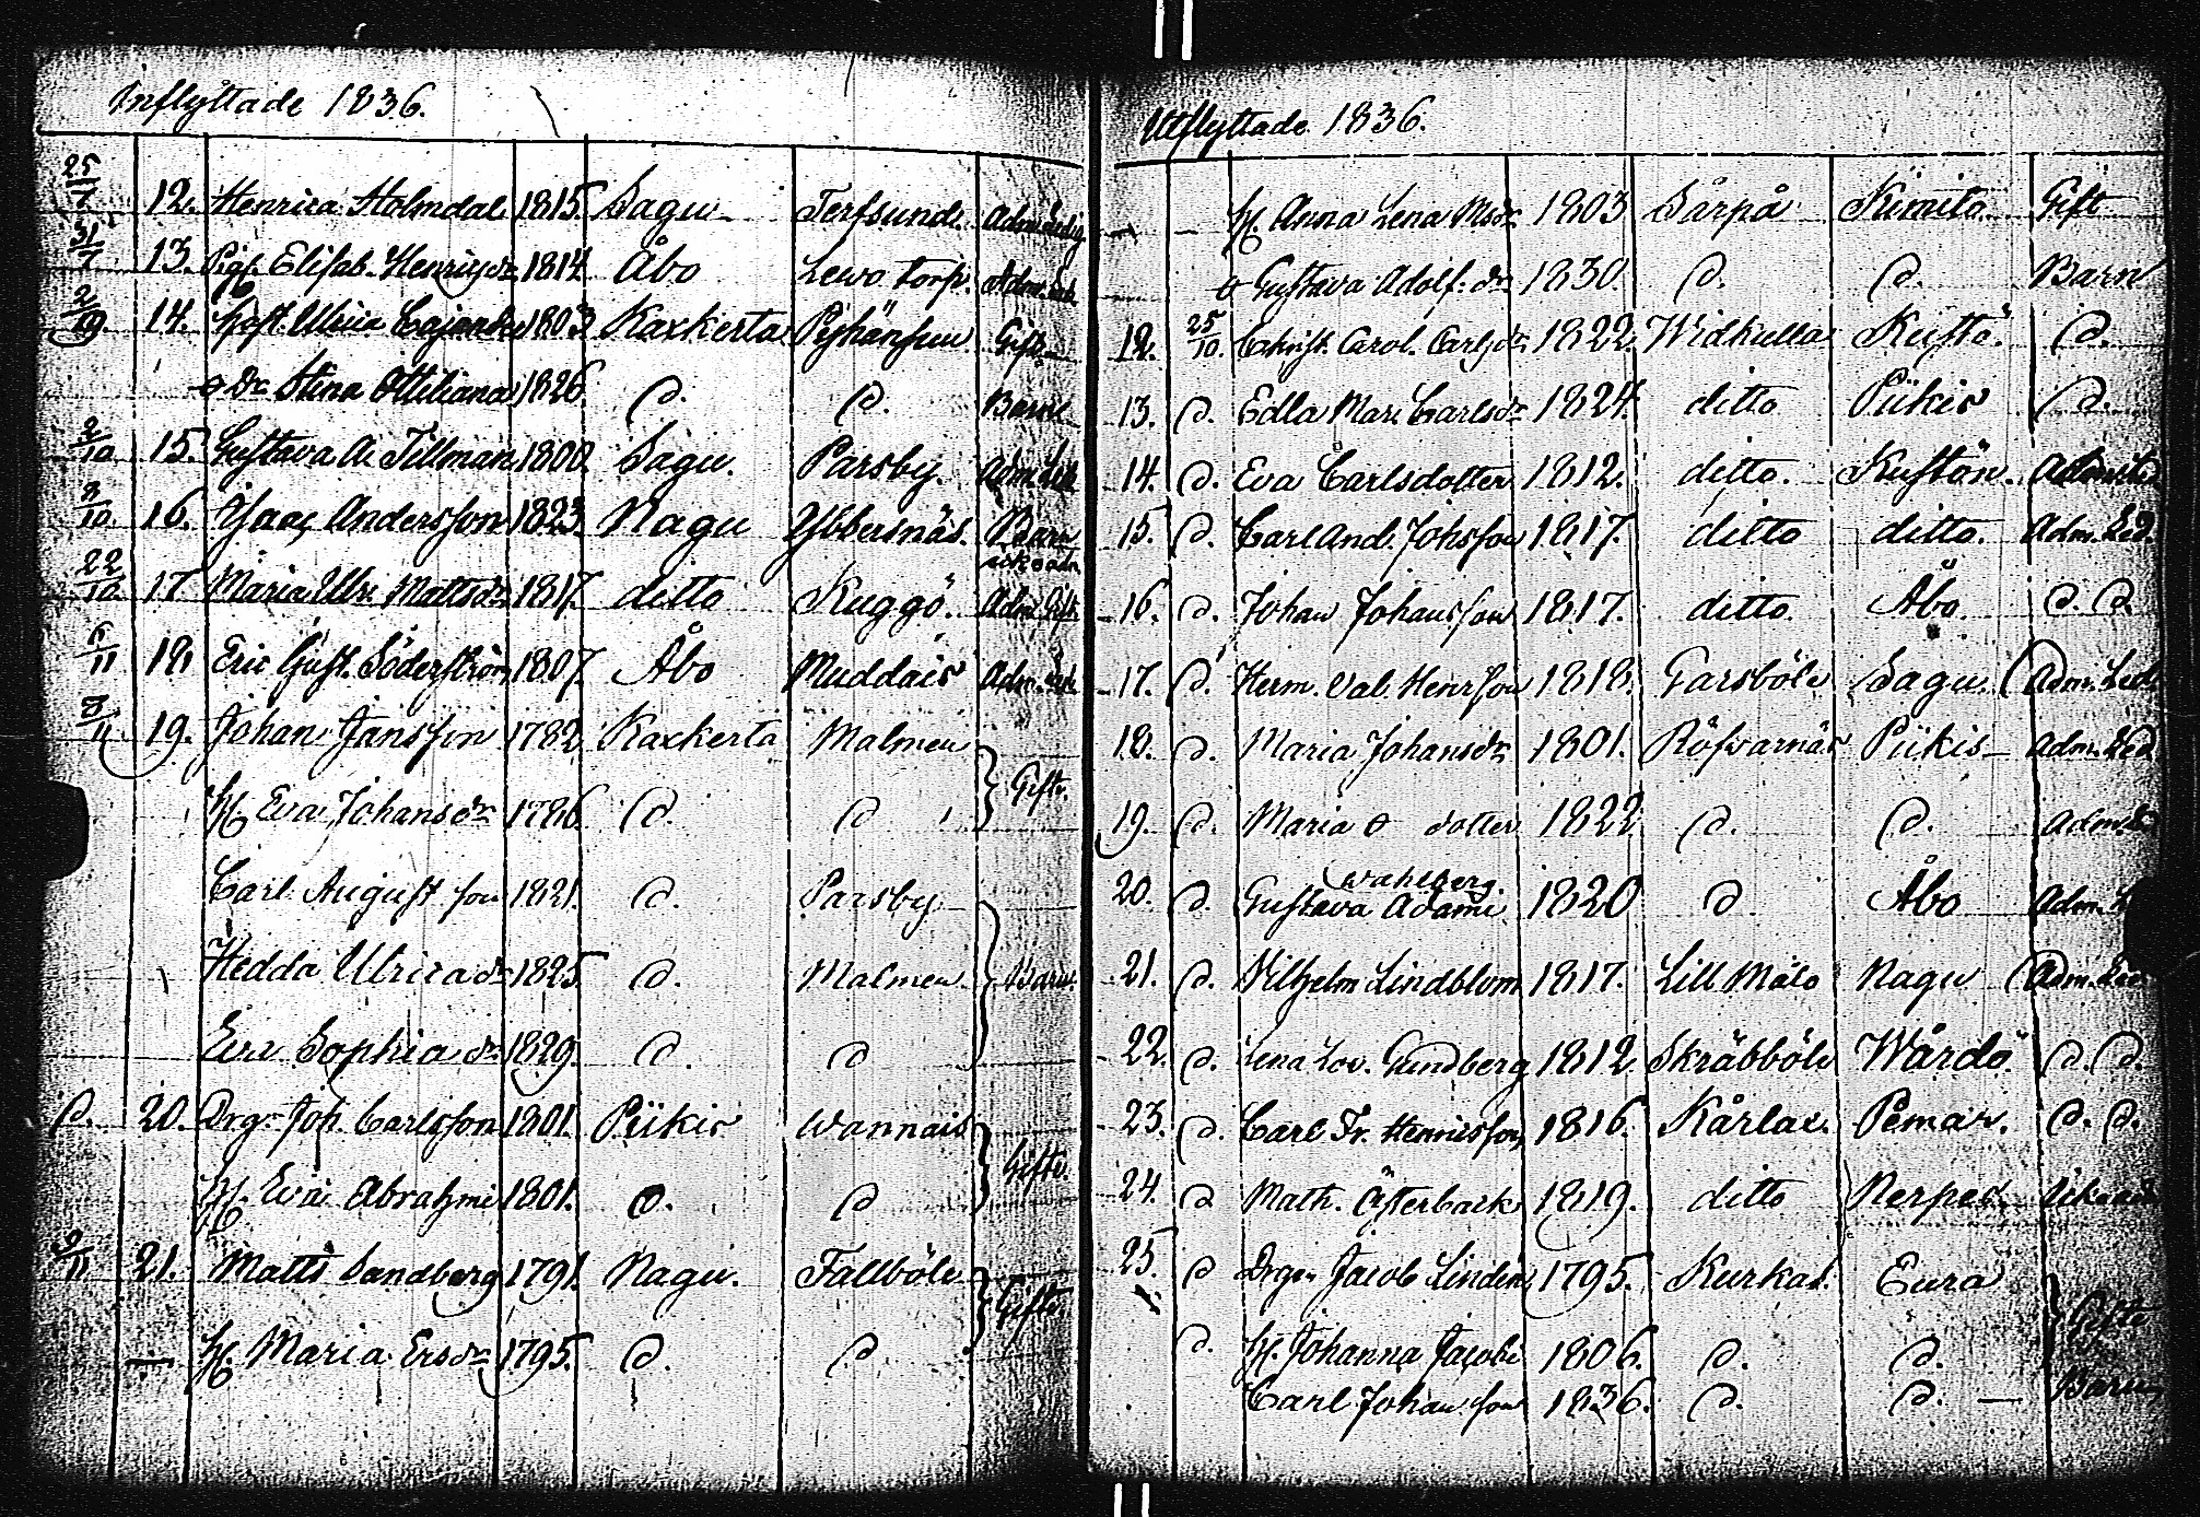 Inflyttade 1836.
25/7 12. Henrica Holmdal 1815. Sagu Terfsund. Adm. Ledig
31/7 13. Pig. Elisab. Henrićsdr 1814 Åbo Lewo torp. Adm. Led.
2/10. 14. Hust. Ulrica Cajander 1803 Kaxkerta Gift
o Dr Stina Ottiliana 1826 D. D. Barn
2/10 15. Gustava A. Tillman 1800. Sagu. Parsby. Adm. Led
8/10 16. Isaac Andersson 1823. Nagu Ybbersnäs. Barn
icke adm.
22/10 17 Maria Ulr. Mattsdr 1817. ditto Kuggö. Adm. Gift.
6/11 18 Eric Gust. Söderström 1807. Åbo Muddais Adm. Led.
8/11. 19. Johan Jansson 1782 Kaxkerta Malmen
H. Eva Johansdr 1786. D. D Gifte.
Carl August son 1821. D. Parsby
Hedda Ulrica dr 1825 D. Malmen. Barn.
Eva Sophia dr 1829. D. D
D. 20. Drg. Joh. Carlsson 1801. Piikis Wannais
H. Eva Abrahmi 1801. D. D Gifte.
9/11 21. Matts Sandberg 1791. Nagu. Fallböle
— H. Maria Ersdr 1795. D. D Gifte.
Utflyttade 1836.
— — H. Anna Lena Msdr 1803 Sårpå Kimito Gift
o Gustava Adolf. dr 1830. D. D. Barn
12. 25/10. Christ. Carol. Carlsdr 1822. Widkulla Kustö. D.
13. D. Edla Mar. Carlsdr 1824. ditto Piikis D.
14. D. Eva Carlsdotter 1812. ditto. Kustön.
15. D. Carl And. Johsson 1817. ditto ditto. Adm. Led.
16. D. Johan Johansson 1817. ditto. Åbo. D. D.
17. D. Herm. Val. Henrsson 1818. Garsböle Sagu. Adm. Led
18. D. Maria Johansdr 1801. Röfvarnäs Piikis Adm. Led
19. D. Maria o dotter 1822 D. D. Adm.
Wahlberg.
20. D. Gustava Adami 1820 D Åbo Adm. L
21. D. Vilhelm Lindblom 1817. Lill Mälo Nagu Adm. Led
22. D. Lena Lov. Gundberg 1812. Skräbböle Wårdö. D. D.
23. D. Carl Fr. Henricsson 1816. Kårlax. Pemar. D. D.
24. D Math. Österback 1819. ditto Nerpes. Icke ad
25. D Drg. Jacob Lindén 1795. Kurkas. Eura
D. H. Johanna Jacobi 1806. D. D. Gifte
Carl Johan son 1836. D. D. — Barn